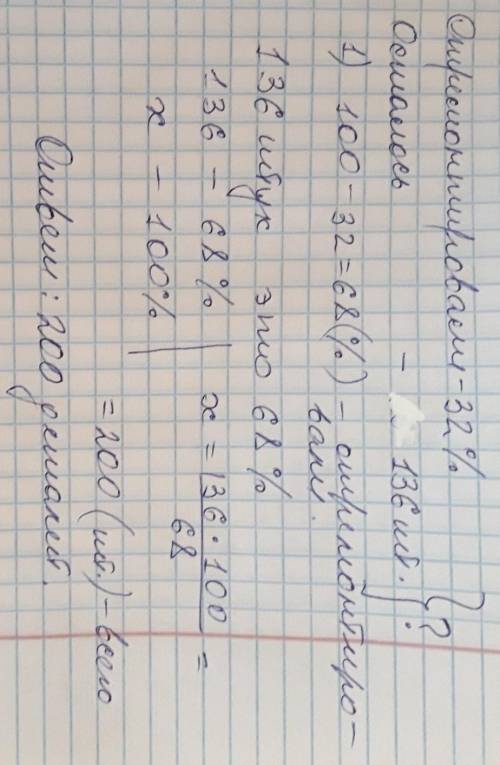 Отремонтировали - 32%
Осталось - 136 шт. } ?
1) 100 - 32 = 68 (%) - отремонтиро-
вали.
136 штук это 68%
136 - 68% | x = 136 · 100 / 68 =
x - 100% |
= 200 (шт.) - всего
Ответ: 200 деталей.